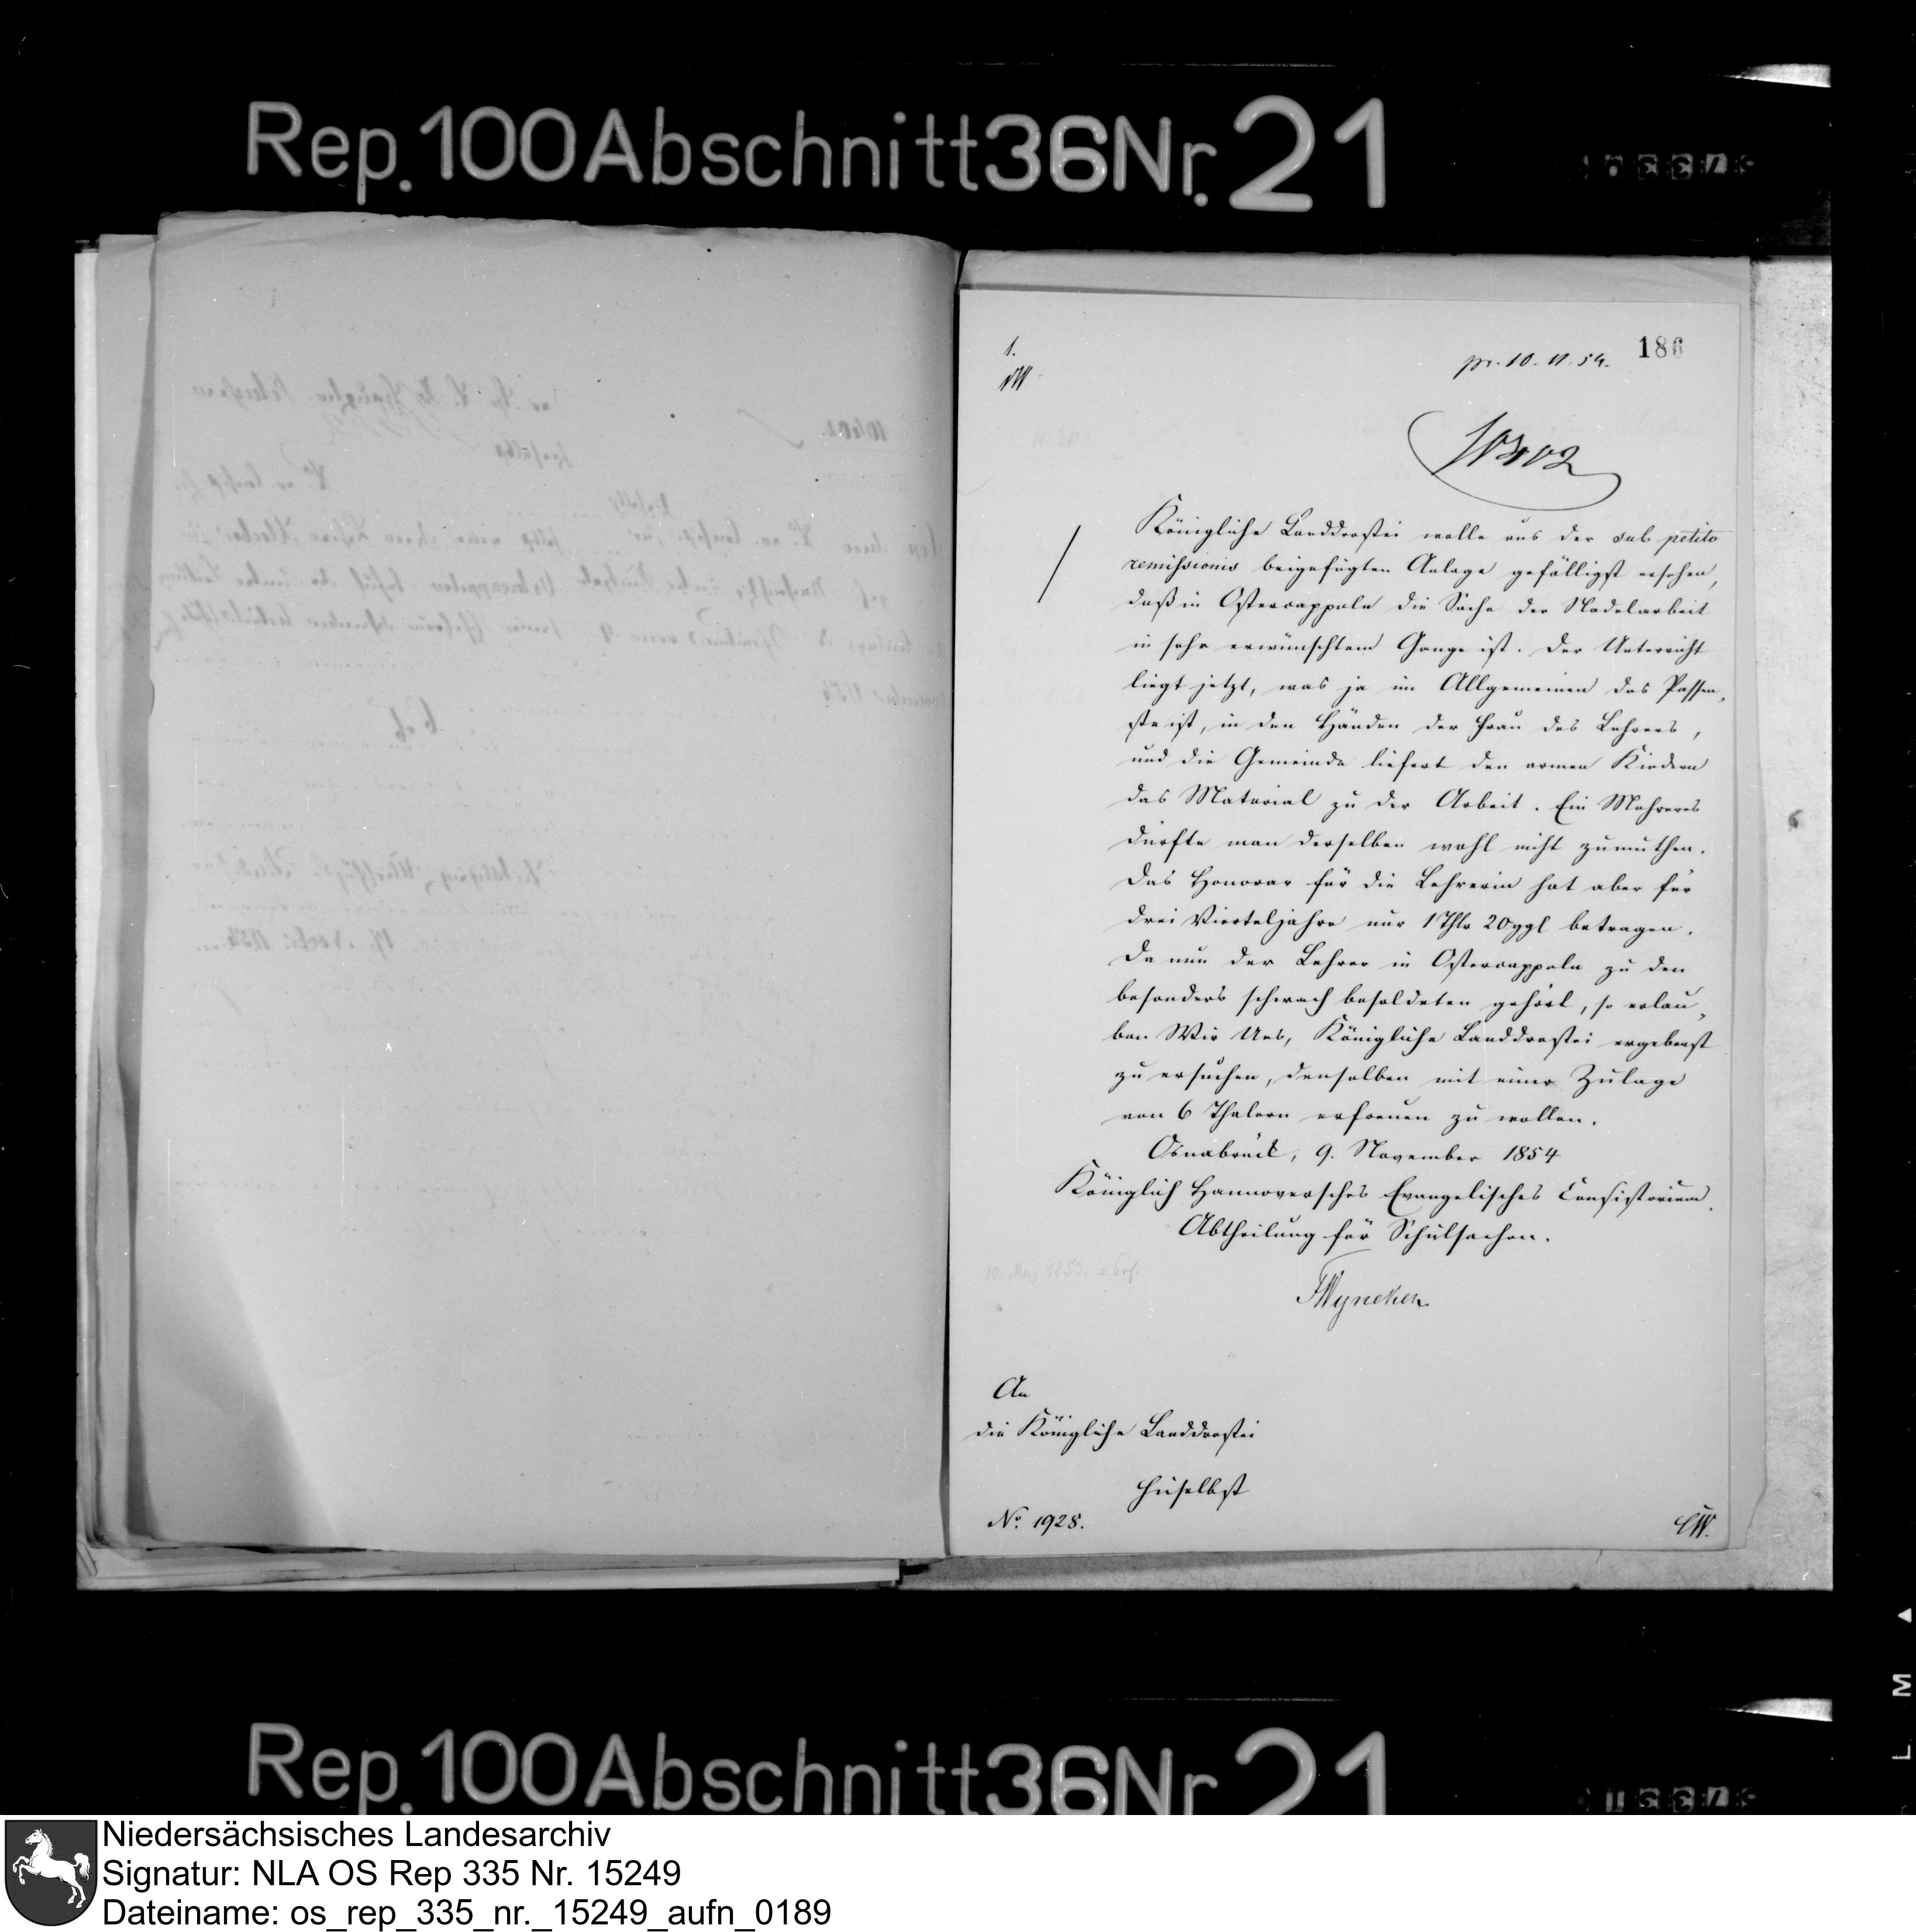 Rep. 100 Abschnitt 36 Nr. 21
1.
pr. 10. 11. 54.
186
Königliche Landdrostei wolle aus der sub petito
remissionis beigefügten Anlage gefälligst ersehen,
daß in Ostercappeln die Sache der Nadelarbeit
in sehr erwünschtem Gange ist. Der Unterricht
liegt jetzt, was ja im Allgemeinen das Passen-
ste ist, in den Händen der Frau des Lehrers,
und die Gemeinde liefert den armen Kindern
das Material zu der Arbeit. Ein Mehreres
dürfte man derselben wohl nicht zumuthen.
Das Honorar für die Lehrerin hat aber für
drei Vierteljahre nur 1 Thlr 20 ggl betragen.
Da nun der Lehrer in Ostercappeln zu den
besonders schwach besoldeten gehört, so erlau-
ben Wir Uns, Königliche Landdrostei ergebenst
zu ersuchen, denselben mit einer Zulage
von 6 Thalern erfreuen zu wollen.
Osnabrück, 9. November 1854
Königlich Hannoversches Evangelisches Consistorium.
Abtheilung für Schulsachen.
Wyneken
An
die Königliche Landdrostei
hieselbst
No. 1928.
CW.
Rep. 100 Abschnitt 36 Nr. 21
L M
Niedersächsisches Landesarchiv
Signatur: NLA OS Rep 335 Nr. 15249
Dateiname: os_rep_335_nr._15249_aufn_0189